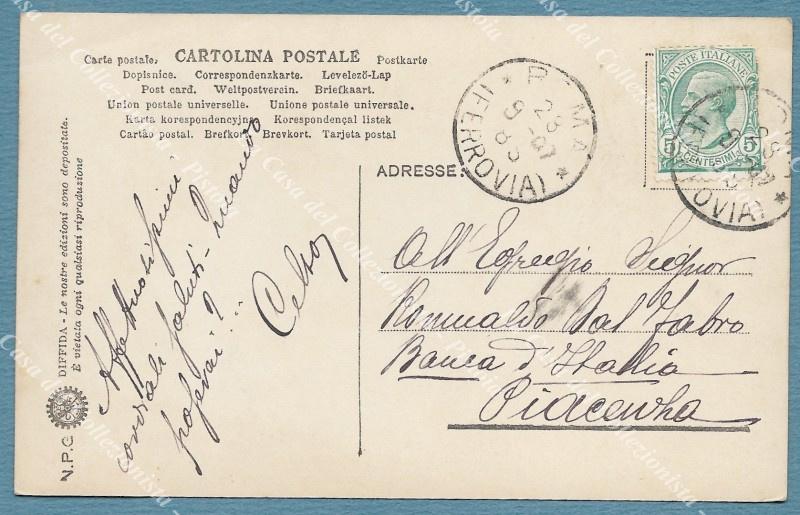 Carte postale. CARTOLINA POSTALE Postkarte
Dopisnice. Correspondenzkarte. Levelező-Lap
Post card. Weltpostverein. Briefkaart.
Union postale universelle. Unione postale universale.
Karta korespondencyjna Korespondençal listek
Cartão postal. Brefkort. Brevkort. Tarjeta postal
POSTE ITALIANE
5 CENTESIMI 5
(FERROVIA)
OVIA)
ADRESSE:
All'Egregio Signor
Romualdo Dal Fabro
Banca d'Italia
Piacenza
Affettuosissimi
cordiali saluti
Celso
DIFFIDA - Le nostre edizioni sono depositate.
È vietata ogni qualsiasi riproduzione
N.P.G
Casa del Collezionista